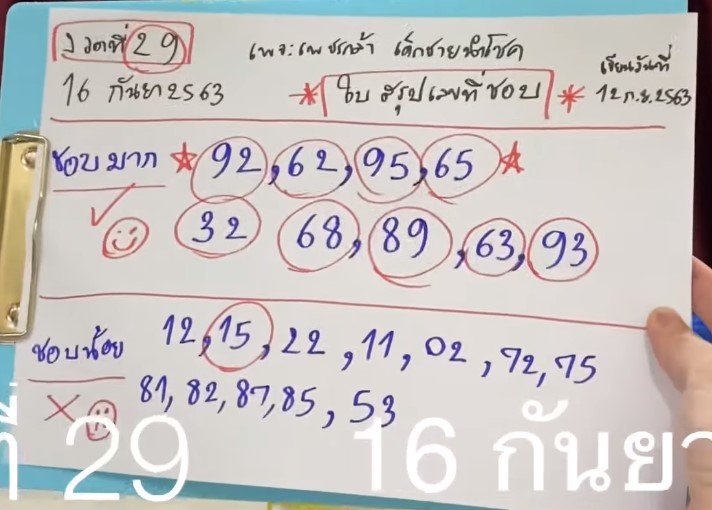 งวดที่ 29
เพจ:เพชรกล้า เด็กชายนำโชค
16 กันยา 2563
* ใบ สรุปเลขที่ชอบ *
เขียนวันที่
12 ก.ย. 2563
ชอบมาก ☆ 92, 62, 95, 65 ☆
✓ ☺ 32 68, 89, 63, 93
ชอบน้อย 12, 15, 22, 11, 02, 72, 75
× ☹ 81, 82, 87, 85, 53
ที่ 29 16 กันยา